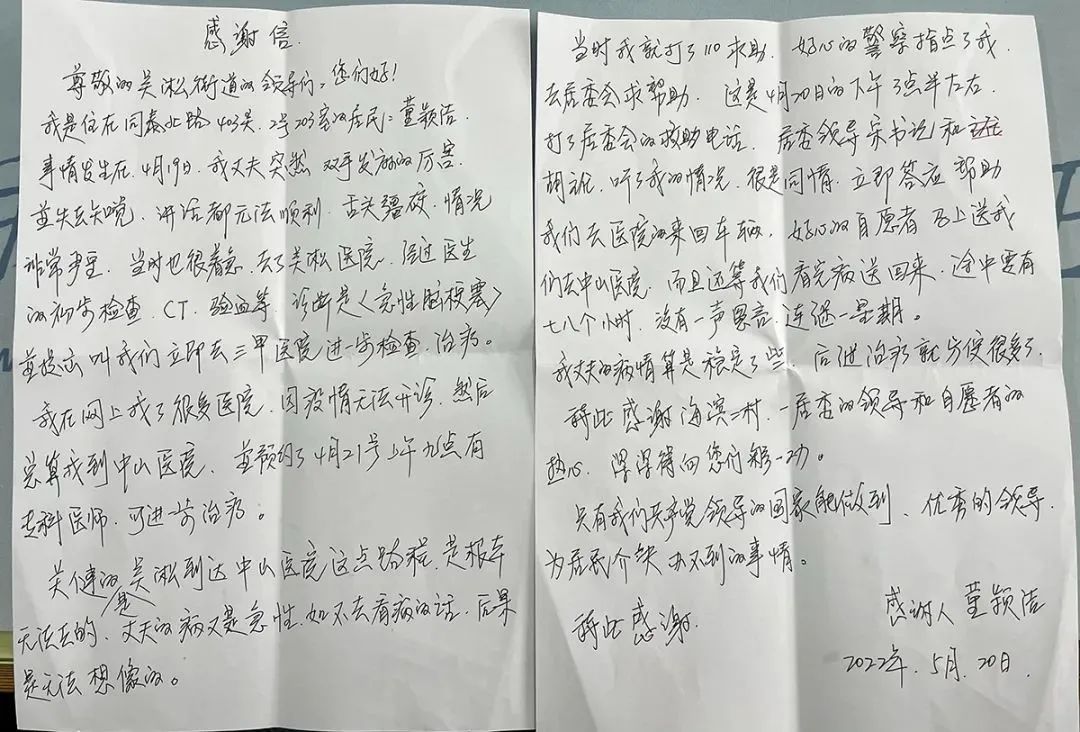 感谢信.
尊敬的吴淞街道的领导们，您们好！
我是住在同泰北路403弄.2号203室的居民：董颖洁.
事情发生在.4月19日.我丈夫突然双手发麻的厉害.
并失去知觉.讲话都无法顺利.舌头僵硬.情况
非常严重.当时也很着急.去了吴淞医院.经过医生
的初步检查.CT.验血等.诊断是〈急性脑梗塞〉
并提出叫我们立即去三甲医院进一步检查.治疗。
我在网上找了很多医院.因疫情无法开诊.然后
总算找到中山医院.并预约了4月21号上午九点有
专科医师.可进一步治疗。
关健的是吴淞到达中山医院这点路程.是根本
无法去的.丈夫的病又是急性.如不去看病的话.后果
是无法想像的。
当时我就打了110求助.好心的警察指点了我.
去居委会求帮助.这是4月20日的下午3点半左右.
打了居委会的救助电话.居委领导宋书记和
胡 听了我的情况.很是同情.立即答应帮助
我们去医院的来回车辆.好心的自愿者马上送我
们去中山医院.而且还等我们看完病送回来.途中要有
七八个小时.没有一声怨言.连继一星期。
我丈夫的病情算是稳定了些.后进治疗就方便很多了.
特此感谢海滨二村.一居委的领导和自愿者的
热心.深深得向您们鞠一功。
只有我们共产党领导的国家能做到、优秀的领导.
为居民介决办不到的事情。
特此感谢.
感谢人董颖洁
2022年.5月.20日.